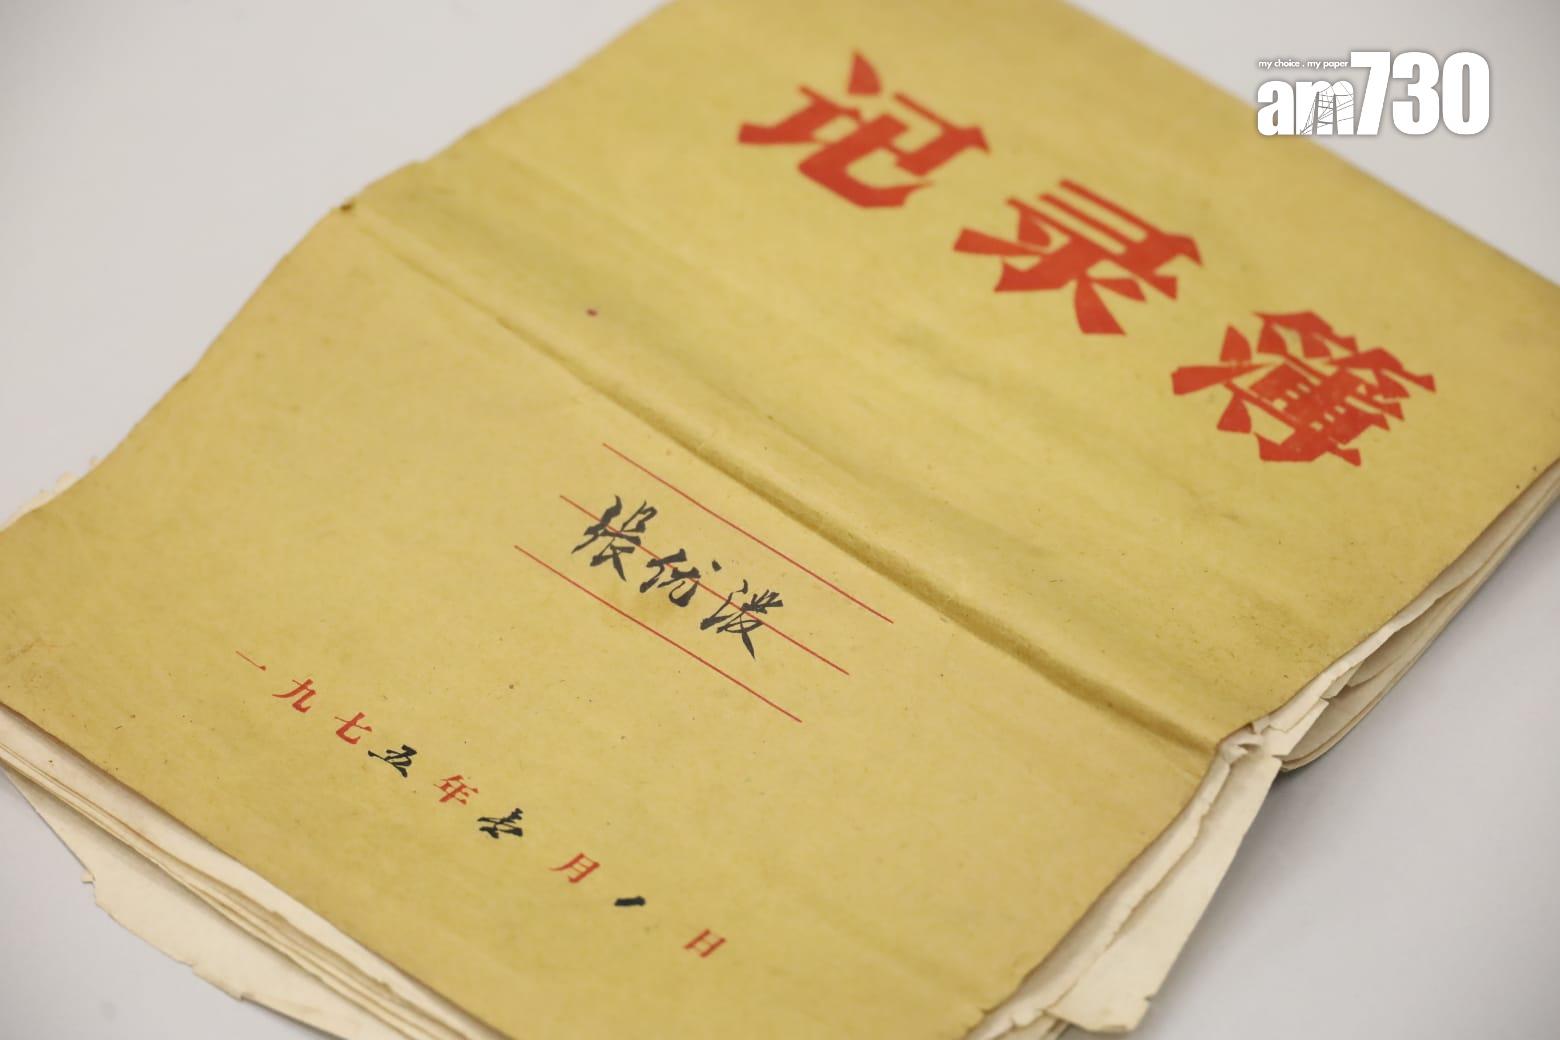 my choice . my paper
am730
记录簿
张优浓
一九七五年壱月1日